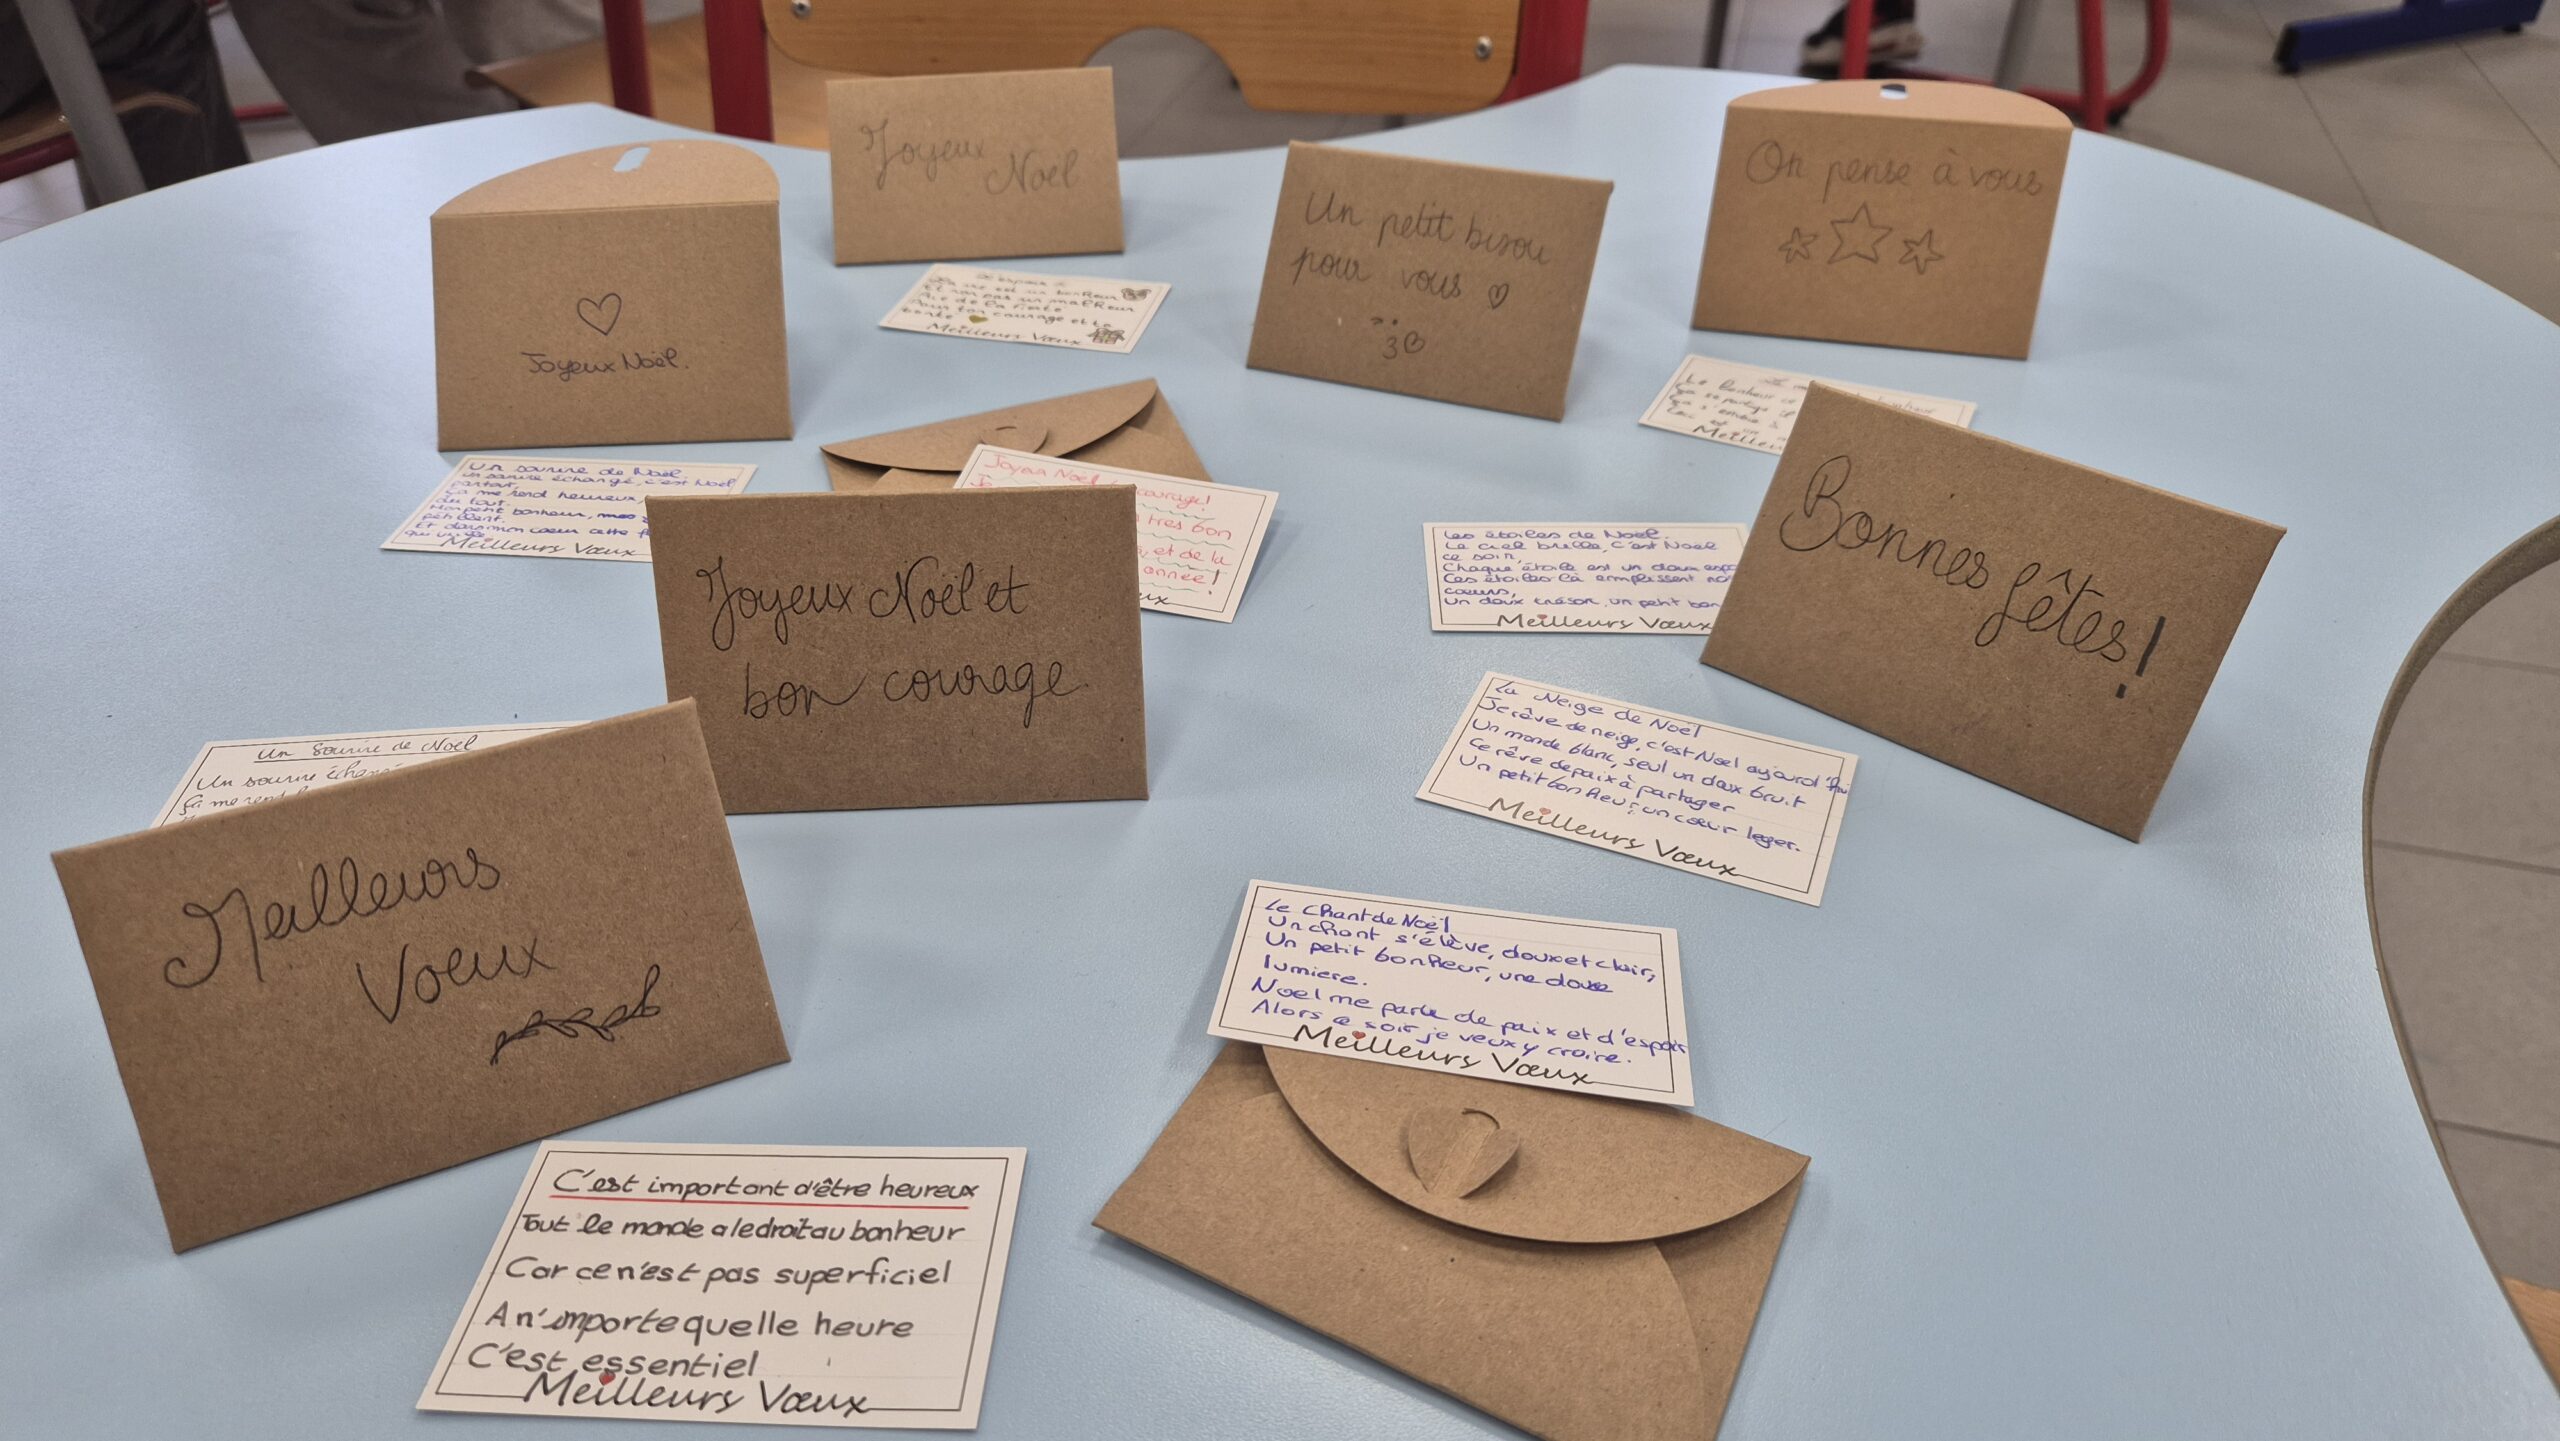 Joyeux
Noël
On pense à vous
Un petit bisou
pour vous
Joyeux Noël.
La vie est un bonheur
Et non pas un malheur
Meilleurs Vœux
Le bonheur
bonheur
Ça se partage
Meilleu
Un sourire de Noël.
Un sourire échangé, c'est Noël
partout,
Ça me rend heureux,
du tout.
Mon petit bonheur,
Et dans mon cœur cette
Meilleurs Vœux
Joyeux Noël
courage!
très bon
et de la
année!
ux
Joyeux Noël et
bon courage
Les étoiles de Noël.
Le ciel brille, c'est Noël
ce soir,
Chaque étoile est un doux espo
Ces étoiles là emplissent no
cœurs,
Un doux trésor, un petit bon
Meilleurs Vœux
Bonnes
fêtes!
La Neige de Noël
Je rêve de neige, c'est Noël aujourd'hui
Un monde blanc, seul un doux bruit
Ce rêve de paix à partager
Un petit bonheur: un cœur leger.
Meilleurs Vœux
Un Sourire de Noël
Un sourire échangé
Ça me rend
Meilleurs
Vœux
Le Chant de Noël
Un chant s'élève, doux et clair,
Un petit bonheur, une douce
lumiere.
Noel me parle de paix et d'espoir
Alors ce soir je veux y croire.
Meilleurs Vœux
C'est important d'être heureux
Tout le monde a le droit au bonheur
Car ce n'est pas superficiel
A n'importe quelle heure
C'est essentiel
Meilleurs Vœux